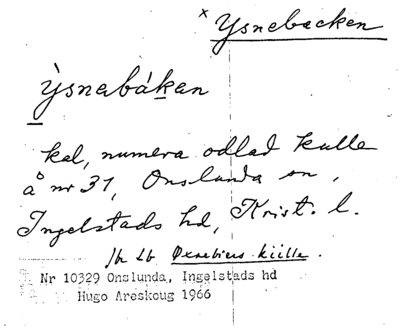 x Ysnebacken
ỳsnabákan
kal, numera odlad kulle
å nr 31, Onslunda sn,
Ingelstads hd, Krist. l.
Jfr Lb
Nr 10329 Onslunda, Ingelstads hd
Hugo Areskoug 1966